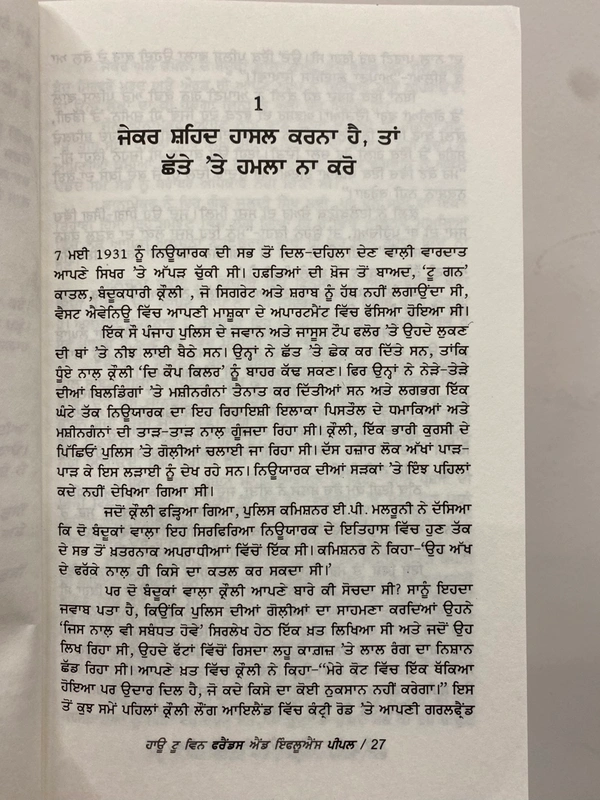 1
ਜੇਕਰ ਸ਼ਹਿਦ ਹਾਸਲ ਕਰਨਾ ਹੈ, ਤਾਂ
ਛੱਤੇ 'ਤੇ ਹਮਲਾ ਨਾ ਕਰੋ
7 ਮਈ 1931 ਨੂੰ ਨਿਊਯਾਰਕ ਦੀ ਸਭ ਤੋਂ ਦਿਲ-ਦਹਿਲਾ ਦੇਣ ਵਾਲ਼ੀ ਵਾਰਦਾਤ
ਆਪਣੇ ਸਿਖਰ 'ਤੇ ਅੱਪੜ ਚੁੱਕੀ ਸੀ। ਹਫ਼ਤਿਆਂ ਦੀ ਖ਼ੋਜ ਤੋਂ ਬਾਅਦ, 'ਟੂ ਗਨ'
ਕਾਤਲ, ਬੰਦੂਕਧਾਰੀ ਕ੍ਰੌਲੀ , ਜੋ ਸਿਗਰੇਟ ਅਤੇ ਸ਼ਰਾਬ ਨੂੰ ਹੱਥ ਨਹੀਂ ਲਗਾਉਂਦਾ ਸੀ,
ਵੈਸਟ ਐਵੇਨਿਊ ਵਿੱਚ ਆਪਣੀ ਮਾਸ਼ੂਕਾ ਦੇ ਅਪਾਰਟਮੈਂਟ ਵਿੱਚ ਫੱਸਿਆ ਹੋਇਆ ਸੀ।
ਇੱਕ ਸੌ ਪੰਜਾਹ ਪੁਲਿਸ ਦੇ ਜਵਾਨ ਅਤੇ ਜਾਸੂਸ ਟੌਪ ਫਲੋਰ 'ਤੇ ਉਹਦੇ ਲੁਕਣ
ਦੀ ਥਾਂ 'ਤੇ ਨੀਝ ਲਾਈ ਬੈਠੇ ਸਨ। ਉਨ੍ਹਾਂ ਨੇ ਛੱਤ 'ਤੇ ਛੇਕ ਕਰ ਦਿੱਤੇ ਸਨ, ਤਾਂਕਿ
ਧੂੰਏ ਨਾਲ਼ ਕ੍ਰੌਲੀ 'ਦਿ ਕੌਪ ਕਿਲਰ' ਨੂੰ ਬਾਹਰ ਕੱਢ ਸਕਣ। ਫਿਰ ਉਨ੍ਹਾਂ ਨੇ ਨੇੜੇ-ਤੇੜੇ
ਦੀਆਂ ਬਿਲਡਿੰਗਾਂ 'ਤੇ ਮਸ਼ੀਨਗੰਨਾਂ ਤੈਨਾਤ ਕਰ ਦਿੱਤੀਆਂ ਸਨ ਅਤੇ ਲਗਭਗ ਇੱਕ
ਘੰਟੇ ਤੱਕ ਨਿਊਯਾਰਕ ਦਾ ਇਹ ਰਿਹਾਇਸ਼ੀ ਇਲਾਕਾ ਪਿਸਤੌਲ ਦੇ ਧਮਾਕਿਆਂ ਅਤੇ
ਮਸ਼ੀਨਗੰਨਾਂ ਦੀ ਤਾੜ-ਤਾੜ ਨਾਲ਼ ਗੂੰਜਦਾ ਰਿਹਾ ਸੀ। ਕ੍ਰੌਲੀ, ਇੱਕ ਭਾਰੀ ਕੁਰਸੀ ਦੇ
ਪਿੱਛਿਓਂ ਪੁਲਿਸ 'ਤੇ ਗੋਲ਼ੀਆਂ ਚਲਾਈ ਜਾ ਰਿਹਾ ਸੀ। ਦੱਸ ਹਜ਼ਾਰ ਲੋਕ ਅੱਖਾਂ ਪਾੜ-
ਪਾੜ ਕੇ ਇਸ ਲੜਾਈ ਨੂੰ ਦੇਖ ਰਹੇ ਸਨ। ਨਿਊਯਾਰਕ ਦੀਆਂ ਸੜਕਾਂ 'ਤੇ ਇੰਝ ਪਹਿਲਾਂ
ਕਦੇ ਨਹੀਂ ਦੇਖਿਆ ਗਿਆ ਸੀ।
ਜਦੋਂ ਕ੍ਰੌਲੀ ਫੜ੍ਹਿਆ ਗਿਆ, ਪੁਲਿਸ ਕਮਿਸ਼ਨਰ ਈ.ਪੀ. ਮਲਰੂਨੀ ਨੇ ਦੱਸਿਆ
ਕਿ ਦੋ ਬੰਦੂਕਾਂ ਵਾਲ਼ਾ ਇਹ ਸਿਰਫਿਰਿਆ ਨਿਊਯਾਰਕ ਦੇ ਇਤਿਹਾਸ ਵਿੱਚ ਹੁਣ ਤੱਕ
ਦੇ ਸਭ ਤੋਂ ਖ਼ਤਰਨਾਕ ਅਪਰਾਧੀਆਂ ਵਿੱਚੋਂ ਇੱਕ ਸੀ। ਕਮਿਸ਼ਨਰ ਨੇ ਕਿਹਾ-'ਉਹ ਅੱਖ
ਦੇ ਫਰੱਕੇ ਨਾਲ਼ ਹੀ ਕਿਸੇ ਦਾ ਕਤਲ ਕਰ ਸਕਦਾ ਸੀ।'
ਪਰ ਦੋ ਬੰਦੂਕਾਂ ਵਾਲ਼ਾ ਕ੍ਰੌਲੀ ਆਪਣੇ ਬਾਰੇ ਕੀ ਸੋਚਦਾ ਸੀ? ਸਾਨੂੰ ਇਹਦਾ
ਜਵਾਬ ਪਤਾ ਹੈ, ਕਿਉਂਕਿ ਪੁਲਿਸ ਦੀਆਂ ਗੋਲ਼ੀਆਂ ਦਾ ਸਾਹਮਣਾ ਕਰਦਿਆਂ ਉਹਨੇ
'ਜਿਸ ਨਾਲ਼ ਵੀ ਸਬੰਧਤ ਹੋਵੇ' ਸਿਰਲੇਖ ਹੇਠ ਇੱਕ ਖ਼ਤ ਲਿਖਿਆ ਸੀ ਅਤੇ ਜਦੋਂ ਉਹ
ਲਿਖ ਰਿਹਾ ਸੀ, ਉਹਦੇ ਫੱਟਾਂ ਵਿੱਚੋਂ ਰਿਸਦਾ ਲਹੂ ਕਾਗਜ਼ 'ਤੇ ਲਾਲ ਰੰਗ ਦਾ ਨਿਸ਼ਾਨ
ਛੱਡ ਰਿਹਾ ਸੀ। ਆਪਣੇ ਖ਼ਤ ਵਿੱਚ ਕ੍ਰੌਲੀ ਨੇ ਕਿਹਾ-"ਮੇਰੇ ਕੋਟ ਵਿੱਚ ਇੱਕ ਥੱਕਿਆ
ਹੋਇਆ ਪਰ ਉਦਾਰ ਦਿਲ ਹੈ, ਜੋ ਕਦੇ ਕਿਸੇ ਦਾ ਕੋਈ ਨੁਕਸਾਨ ਨਹੀਂ ਕਰੇਗਾ।" ਇਸ
ਤੋਂ ਕੁਝ ਸਮੇਂ ਪਹਿਲਾਂ ਕ੍ਰੌਲੀ ਲੌਂਗ ਆਇਲੈਂਡ ਵਿੱਚ ਕੰਟ੍ਰੀ ਰੋਡ 'ਤੇ ਆਪਣੀ ਗਰਲਫ੍ਰੈਂਡ
ਹਾਊ ਟੂ ਵਿਨ ਫਰੈਂਡਸ ਐਂਡ ਇੰਫਲੂਐਂਸ ਪੀਪਲ / 27